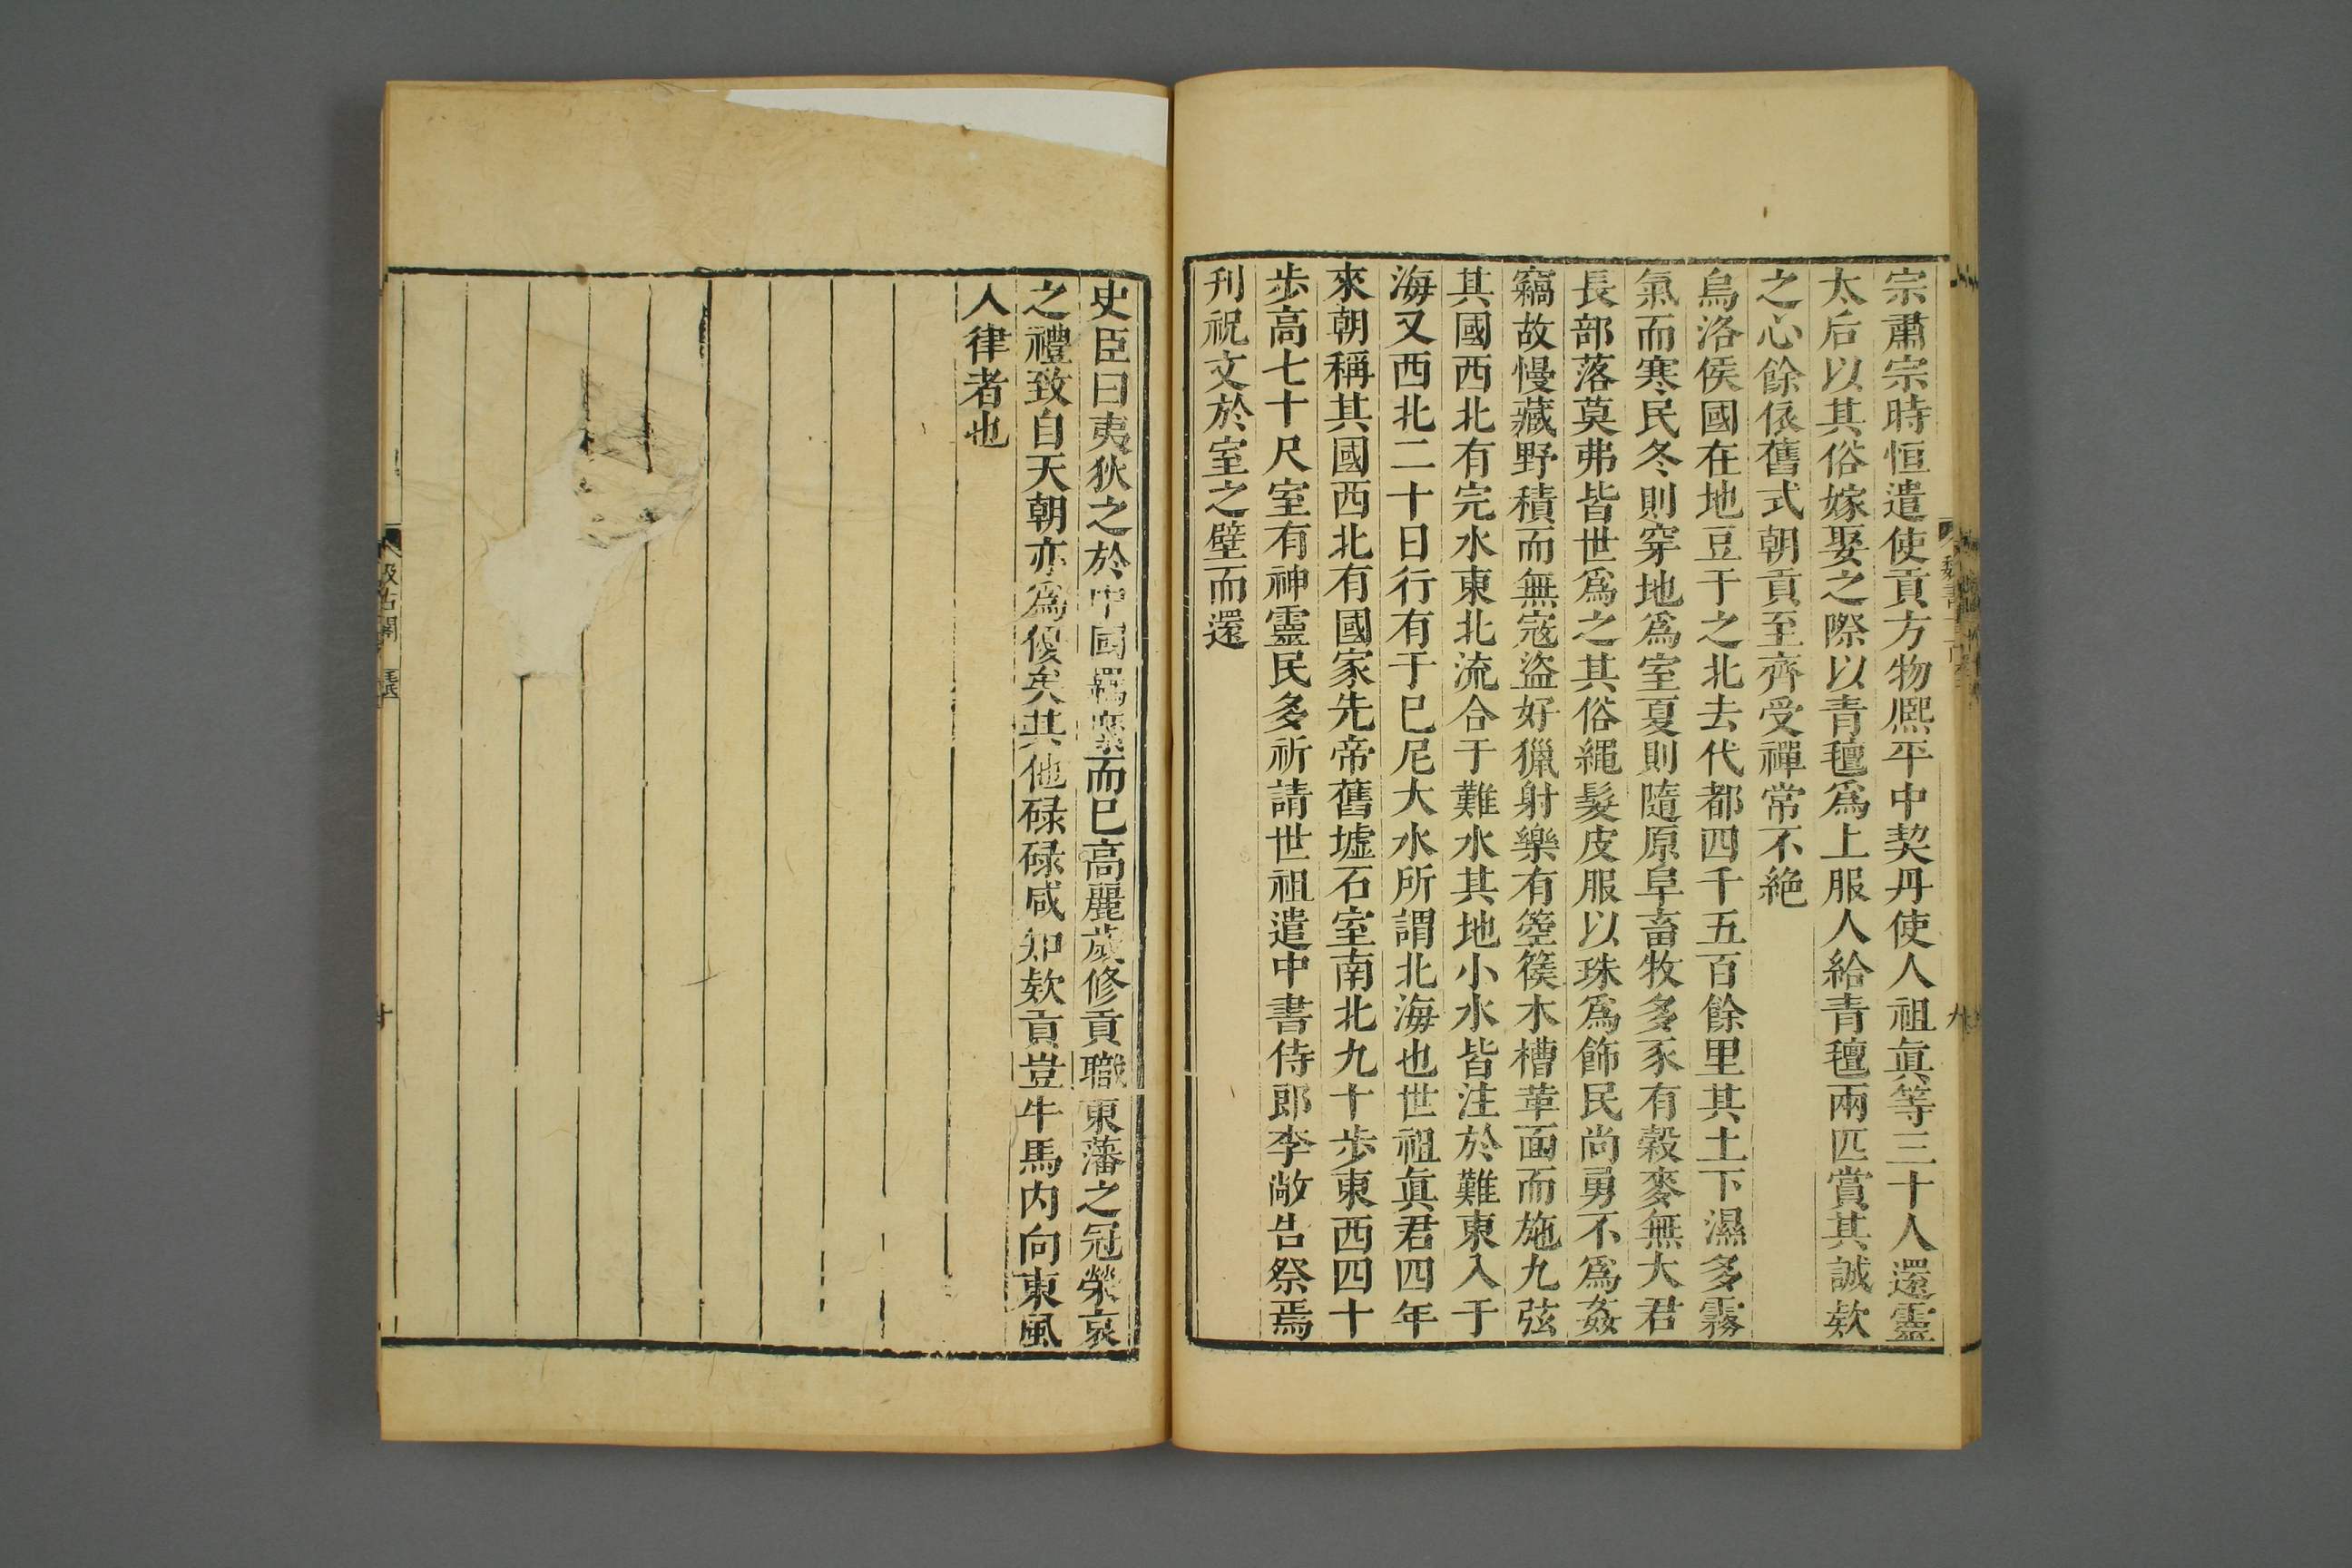 宗肅宗時恒遣使貢方物熈平中契丹使人祖眞等三十人還靈
太后以其俗嫁娶之際以青氊爲上服人給青氊兩匹賞其誠欵
之心餘依舊式朝貢至齊受禪常不絶
烏洛侯國在地豆于之北去代都四千五百餘里其土下濕多霧
氣而寒民冬則穿地爲室夏則隨原阜畜牧多豕有穀麥無大君
長部落莫弗皆世爲之其俗繩髮皮服以珠爲飾民尚勇不爲姦
竊故慢藏野積而無寇盜好獵射樂有箜篌木槽革面而施九弦
其國西北有完水東北流合于難水其地小水皆注於難東入于
海又西北二十日行有于巳尼大水所謂北海也世祖眞君四年
來朝稱其國西北有國家先帝舊墟石室南北九十步東西四十
步高七十尺室有神靈民多祈請世祖遣中書侍郎李敞告祭焉
刊祝文於室之壁而還
史臣曰夷狄之於中國羈縻而已高麗歲修貢職東藩之冠榮哀
之禮致自天朝亦爲優矣其他碌碌咸知欵貢豈牛馬内向東風
入律者也
汲古閣